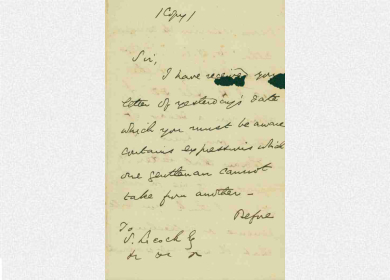 /Copy/
Sir,
I have received your
letter of yesterday's date
which you must be aware
contains expressions which
one gentleman cannot
take from another –
Before
To